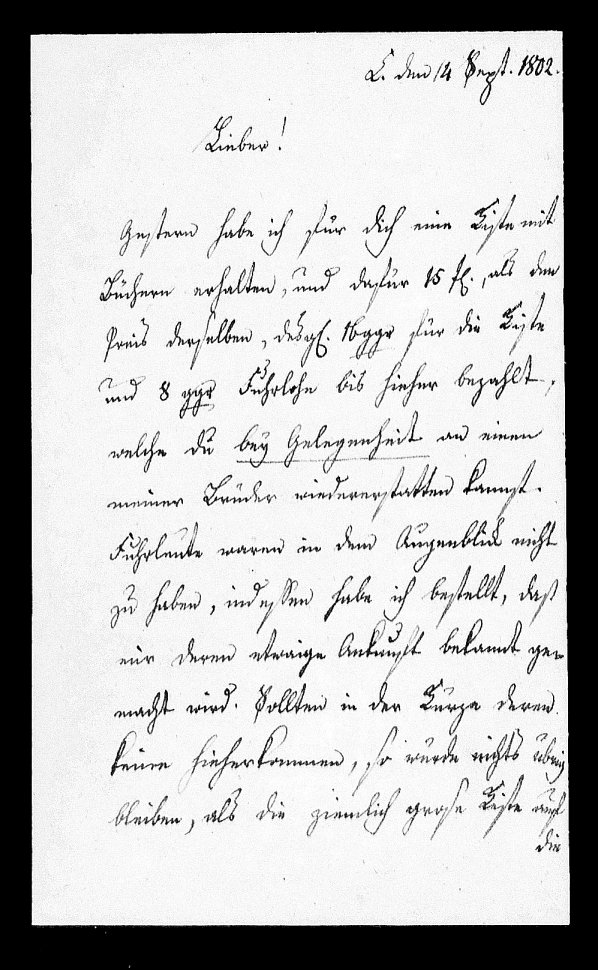 L. den 14 Sept. 1802.
Lieber!
Gestern habe ich für dich eine Kiste mit
Büchern erhalten, und dafür 15 fl., als den
Preis derselben, desgl. 16 ggr für die Kiste
und 8 ggr Fuhrlohn bis hieher bezahlt,
welche du bey Gelegenheit an einen
meiner Brüder wiedererstatten kannst.
Fuhrleute waren in dem Augenblick nicht
zu haben, indessen habe ich bestellt, daß
mir deren etwaige Ankunft bekannt ge-
macht wird. Sollten in der Kürze deren
keine hieherkommen, so würde nichts übrig
bleiben, als die ziemlich grose Kiste auf
die